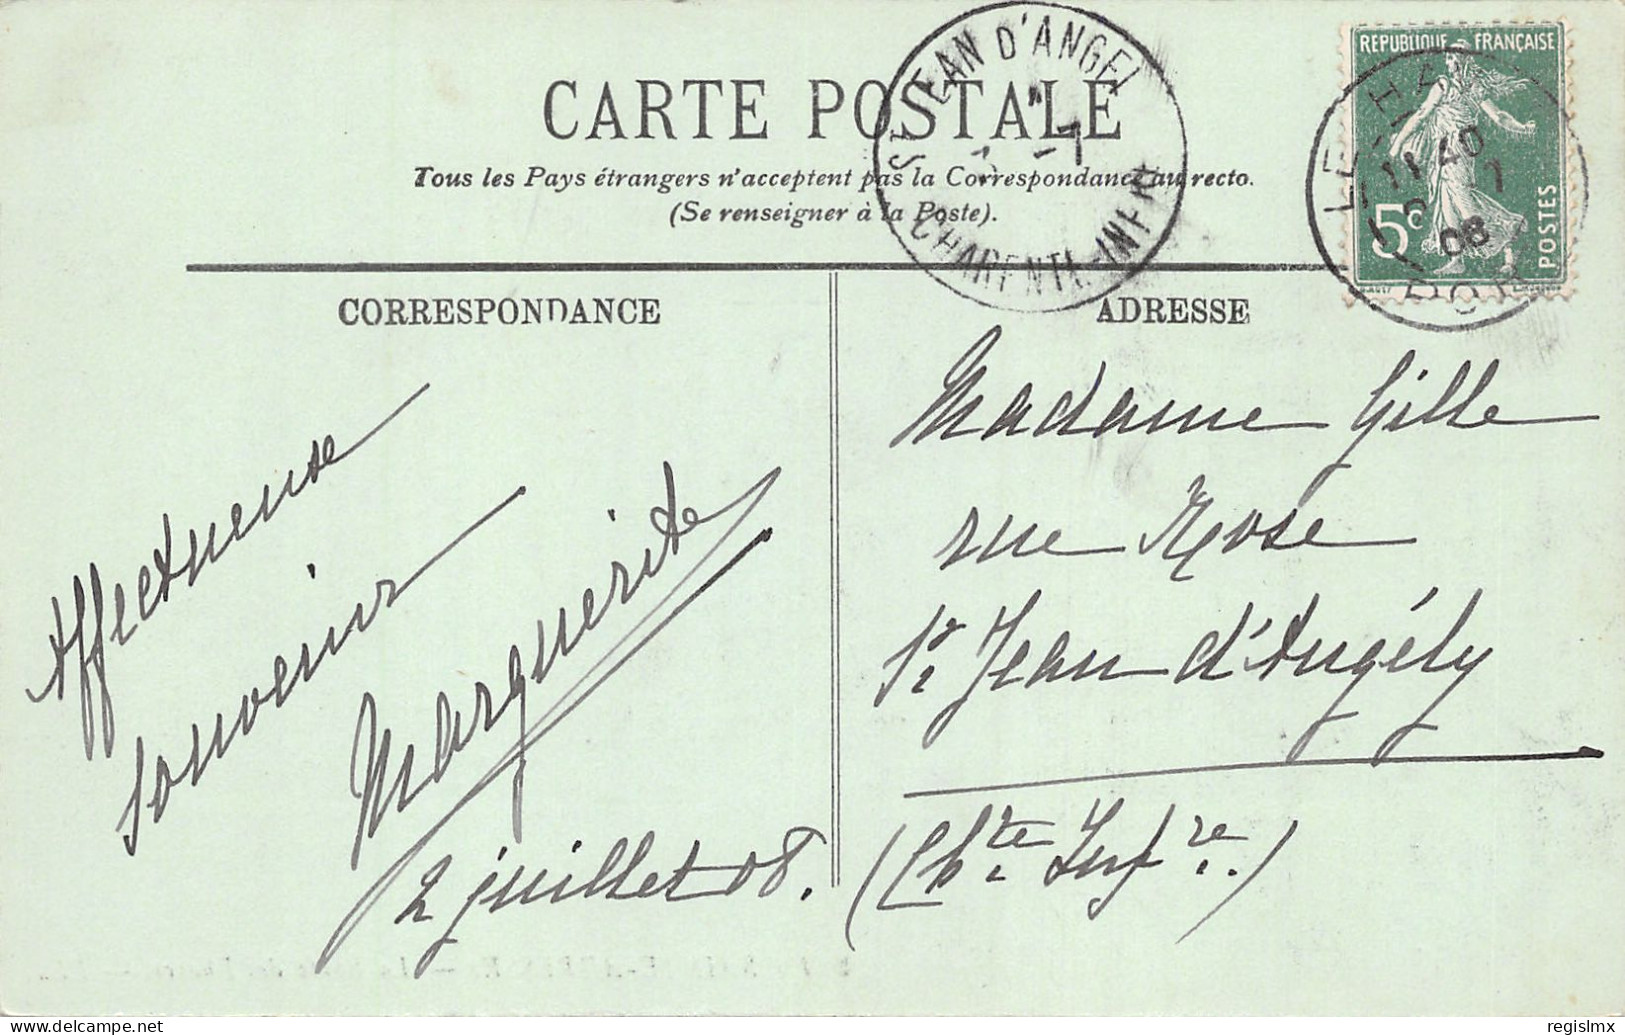 CARTE POSTALE
Tous les Pays étrangers n'acceptent pas la Correspondance au recto.
(Se renseigner à la Poste).
ST JEAN D'ANGEL
CHARENTE-INFRE
REPUBLIQUE FRANÇAISE
5c
POSTES
LE HA
11 40
2 7
08
CORRESPONDANCE
Affectueuse
souvenir
Marguerite
2 juillet 08.
ADRESSE
Madame Gille
rue Rose
St Jean d'Angély
(Chte Infre.)
www.delcampe.net
regislmx